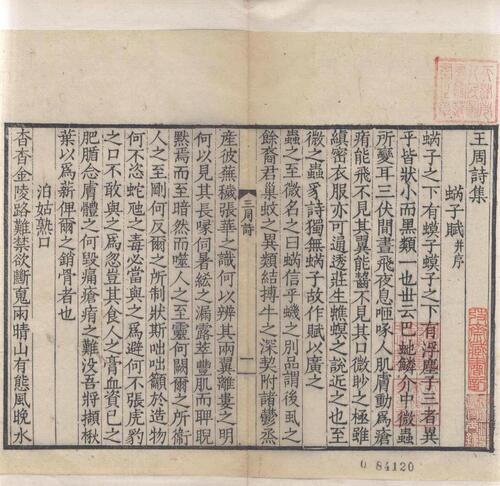 王周詩集
蜹子賦并序
蜹子之下有蟆子蟆子之下有浮塵子三者異
乎皆狀小而黑類一也丗云巴虵鱗介中微蟲
所變耳三伏間晝飛夜息咂啄人肌膚動為瘡
痏能飛不見其翼能齧不見其口微眇之極雖
縝密衣服亦可通透莊生蟭螟之說近之也至
微之蟲豸詩獨無蜹子故作賦以廣之
蟲之至微名之曰蜹信乎蟣之别品謂後虱之
餘裔君巢蚊之異類結搏牛之深契附諸鬱烝
三周詩
一
産彼蕪穢張華之識何以辨其兩翼離婁之明
何以見其長喙伺暑綌之漏露萃豐肌而聊睨
黙焉而至暗然而噬人之至靈何闕爾之所衛
人之至剛何反爾之所制狀斯咄咄顓於造物
何不忿蛇虺之毒必當與之為避何不張虎豹
之口不敢與之為忽豈其食人之膏血資已之
肥腯忿膚體之何毀痛瘡痏之難没吾將擷楸
葉以為薪俾爾之銷骨者也
泊姑熟口
杳杳金陵路難禁欲斷䰟雨晴山有態風晚水
0 84120